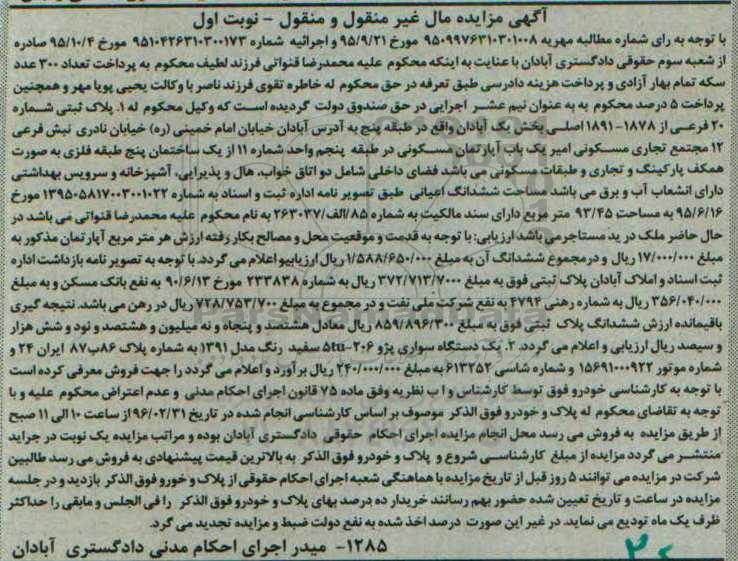 آگهی مزایده مال غیر منقول و منقول - نوبت اول
با توجه به رای شماره مطالبه مهریه ۹۵۰۹۹۷۶۳۱۰۳۰۱۰۰۸ مورخ ۹۵/۹/۲۱ و اجرائیه شماره ۹۵۱۰۴۲۶۳۱۰۳۰۰۱۷۳ مورخ ۹۵/۱۰/۴ صادره
از شعبه سوم حقوقی دادگستری آبادان با عنایت به اینکه محکوم علیه محمدرضا قنواتی فرزند لطیف محکوم به پرداخت تعداد ۳۰۰ عدد
سکه تمام بهار آزادی و پرداخت هزینه دادرسی طبق تعرفه در حق محکوم له خاطره تقوی فرزند ناصر با وکالت یحیی پویا مهر و همچنین
پرداخت ۵ درصد محکوم به به عنوان نیم عشر اجرایی در حق صندوق دولت گردیده است که وکیل محکوم له ۱. پلاک ثبتی شماره
۲۰ فرعی از ۱۸۷۸-۱۸۹۱ اصلی بخش یک آبادان واقع در طبقه پنج به آدرس آبادان خیابان امام خمینی (ره) خیابان نادری نبش فرعی
۱۲ مجتمع تجاری مسکونی امیر یک باب آپارتمان مسکونی در طبقه پنجم واحد شماره ۱۱ از یک ساختمان پنج طبقه فلزی به صورت
همکف پارکینگ و تجاری و طبقات مسکونی می باشد فضای داخلی شامل دو اتاق خواب، هال و پذیرایی، آشپزخانه و سرویس بهداشتی
دارای انشعاب آب و برق می باشد مساحت ششدانگ اعیانی طبق تصویر نامه اداره ثبت و اسناد به شماره ۱۳۹۵۰۵۸۱۷۰۰۳۰۰۱۰۲۲ مورخ
۹۵/۶/۱۶ به مساحت ۹۳/۴۵ متر مربع دارای سند مالکیت به شماره ۸۵/الف/۲۶۳۰۳۷ به نام محکوم علیه محمدرضا قنواتی می باشد در
حال حاضر ملک در ید مستاجر می باشد ارزیابی: با توجه به قدمت و موقعیت محل و مصالح بکار رفته ارزش هر متر مربع آپارتمان مذکور به
مبلغ ۱۷/۰۰۰/۰۰۰ ریال و در مجموع ششدانگ آن به مبلغ ۱/۵۸۸/۶۵۰/۰۰۰ ریال ارزیابیو اعلام می گردد. با توجه به تصویر نامه بازداشت اداره
ثبت اسناد و املاک آبادان پلاک ثبتی فوق به مبلغ ۳۷۲/۷۱۳/۷۰۰۰ ریال به شماره ۲۳۳۸۳۸ مورخ ۹۰/۶/۱۳ به نفع بانک مسکن و به مبلغ
۳۵۶/۰۴۰/۰۰۰ ریال به شماره رهنی ۴۷۹۴ به نفع شرکت ملی نفت و در مجموع به مبلغ ۷۲۸/۷۵۳/۷۰۰ ریال در رهن می باشد. نتیجه گیری
باقیمانده ارزش ششدانگ پلاک ثبتی فوق به مبلغ ۸۵۹/۸۹۶/۳۰۰ ریال معادل هشتصد و پنجاه و نه میلیون و هشتصد و نود و شش هزار
و سیصد ریال ارزیابی و اعلام می گردد. ۲. یک دستگاه سواری پژو ۲۰۶-5tu سفید رنگ مدل ۱۳۹۱ به شماره پلاک ۸۶ب۸۷ ایران ۲۴ و
شماره موتور ۱۵۶۹۱۰۰۰۹۲۲ و شماره شاسی ۶۱۳۲۵۲ به مبلغ ۲۴۰/۰۰۰/۰۰۰ ریال برآورد و اعلام می گردد را جهت فروش معرفی کرده است
با توجه به کارشناسی خودرو فوق توسط کارشناس و ا ب نظریه وفق ماده ۷۵ قانون اجرای احکام مدنی و عدم اعتراض محکوم علیه و با
توجه به تقاضای محکوم له پلاک و خودرو فوق الذکر موصوف بر اساس کارشناسی انجام شده در تاریخ ۹۶/۰۲/۳۱ از ساعت ۱۰ الی ۱۱ صبح
از طریق مزایده به فروش می رسد محل انجام مزایده اجرای احکام حقوقی دادگستری آبادان بوده و مراتب مزایده یک نوبت در جراید
منتشر می گردد مزایده از مبلغ کارشناسی شروع و پلاک و خودرو فوق الذکر به بالاترین قیمت پیشنهادی به فروش می رسد طالبین
شرکت در مزایده می توانند ۵ روز قبل از تاریخ مزایده با هماهنگی شعبه اجرای احکام حقوقی از پلاک و خورو فوق الذکر بازدید و در جلسه
مزایده در ساعت و تاریخ تعیین شده حضور بهم رسانند خریدار ده درصد بهای پلاک و خودرو فوق الذکر را فی المجلس و مابقی را حداکثر
ظرف یک ماه تودیع می نماید. در غیر این صورت درصد اخذ شده به نفع دولت ضبط و مزایده تجدید می گردد.
۱۲۸۵- میدر اجرای احکام مدنی دادگستری آبادان
ParsNamadData